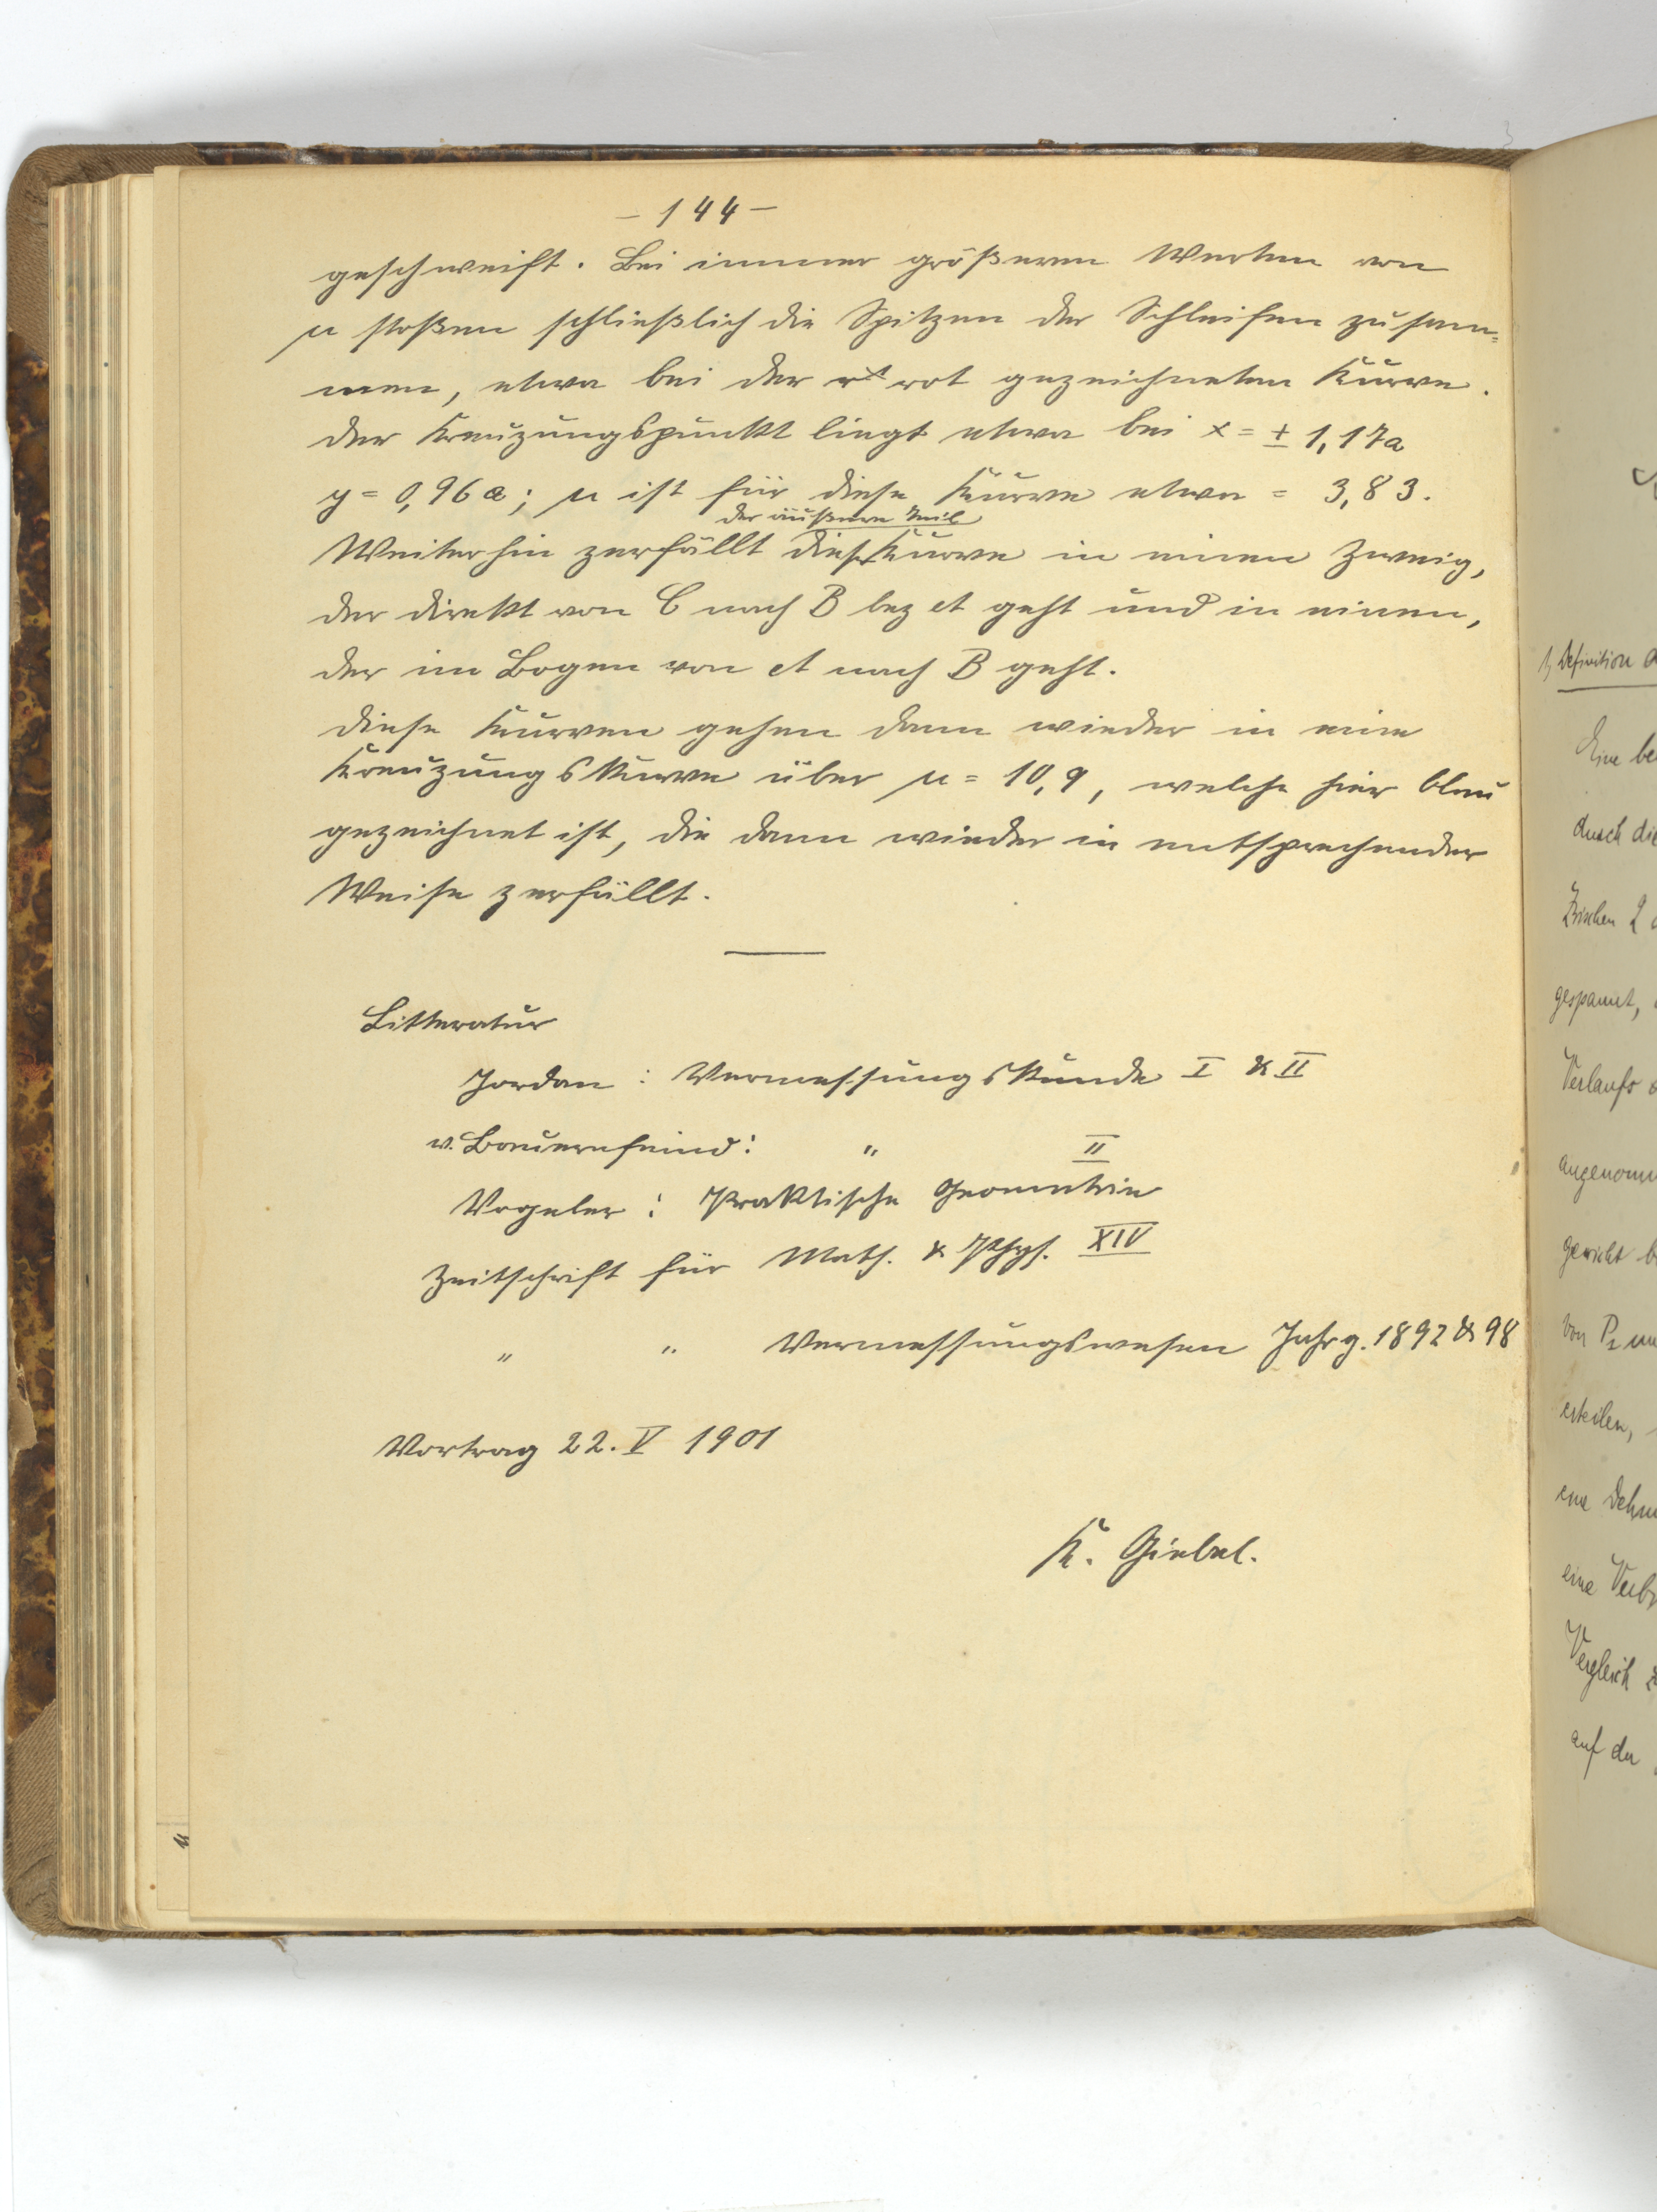 – 144 –
geschweift. Bei immer größeren Werten von
μ stoßen schließlich die Spitzen der Schleifen zusam=
men, etwa bei der rot gezeichneten Kurve.
Der Kreuzungspunkt liegt etwa bei x = ± 1,17a
y = 0,96a; μ ist für diese Kurve etwa = 3,83.
der äußere Teil
Weiterhin zerfällt dieser Kurve in einen Zweig,
der direkt von C nach B bez A geht und in einen,
der im Bogen von A nach B geht.
Diese Kurven gehen dann wieder in eine
Kreuzungskurve über μ = 10,9, welche hier blau
gezeichnet ist, die dann wieder in entsprechender
Weise zerfällt.
Litteratur
Jordan : Vermessungskunde I & II
v. Bauernfeind : " II
Vogeler : Praktische Geometrie
Zeitschrift für Math. & Phys. XIV
" " Vermessungswesen Jahrg. 1892 & 98
Vortrag 22. V 1901
K. Giebel.
1, Definition
Eine be
durch die
Zwischen 2
gespannt,
Verlaufs
angenomm
gewicht b
von P₂ un
erteilen,
eine Dehn
eine Verb
Vergleich z
auf der